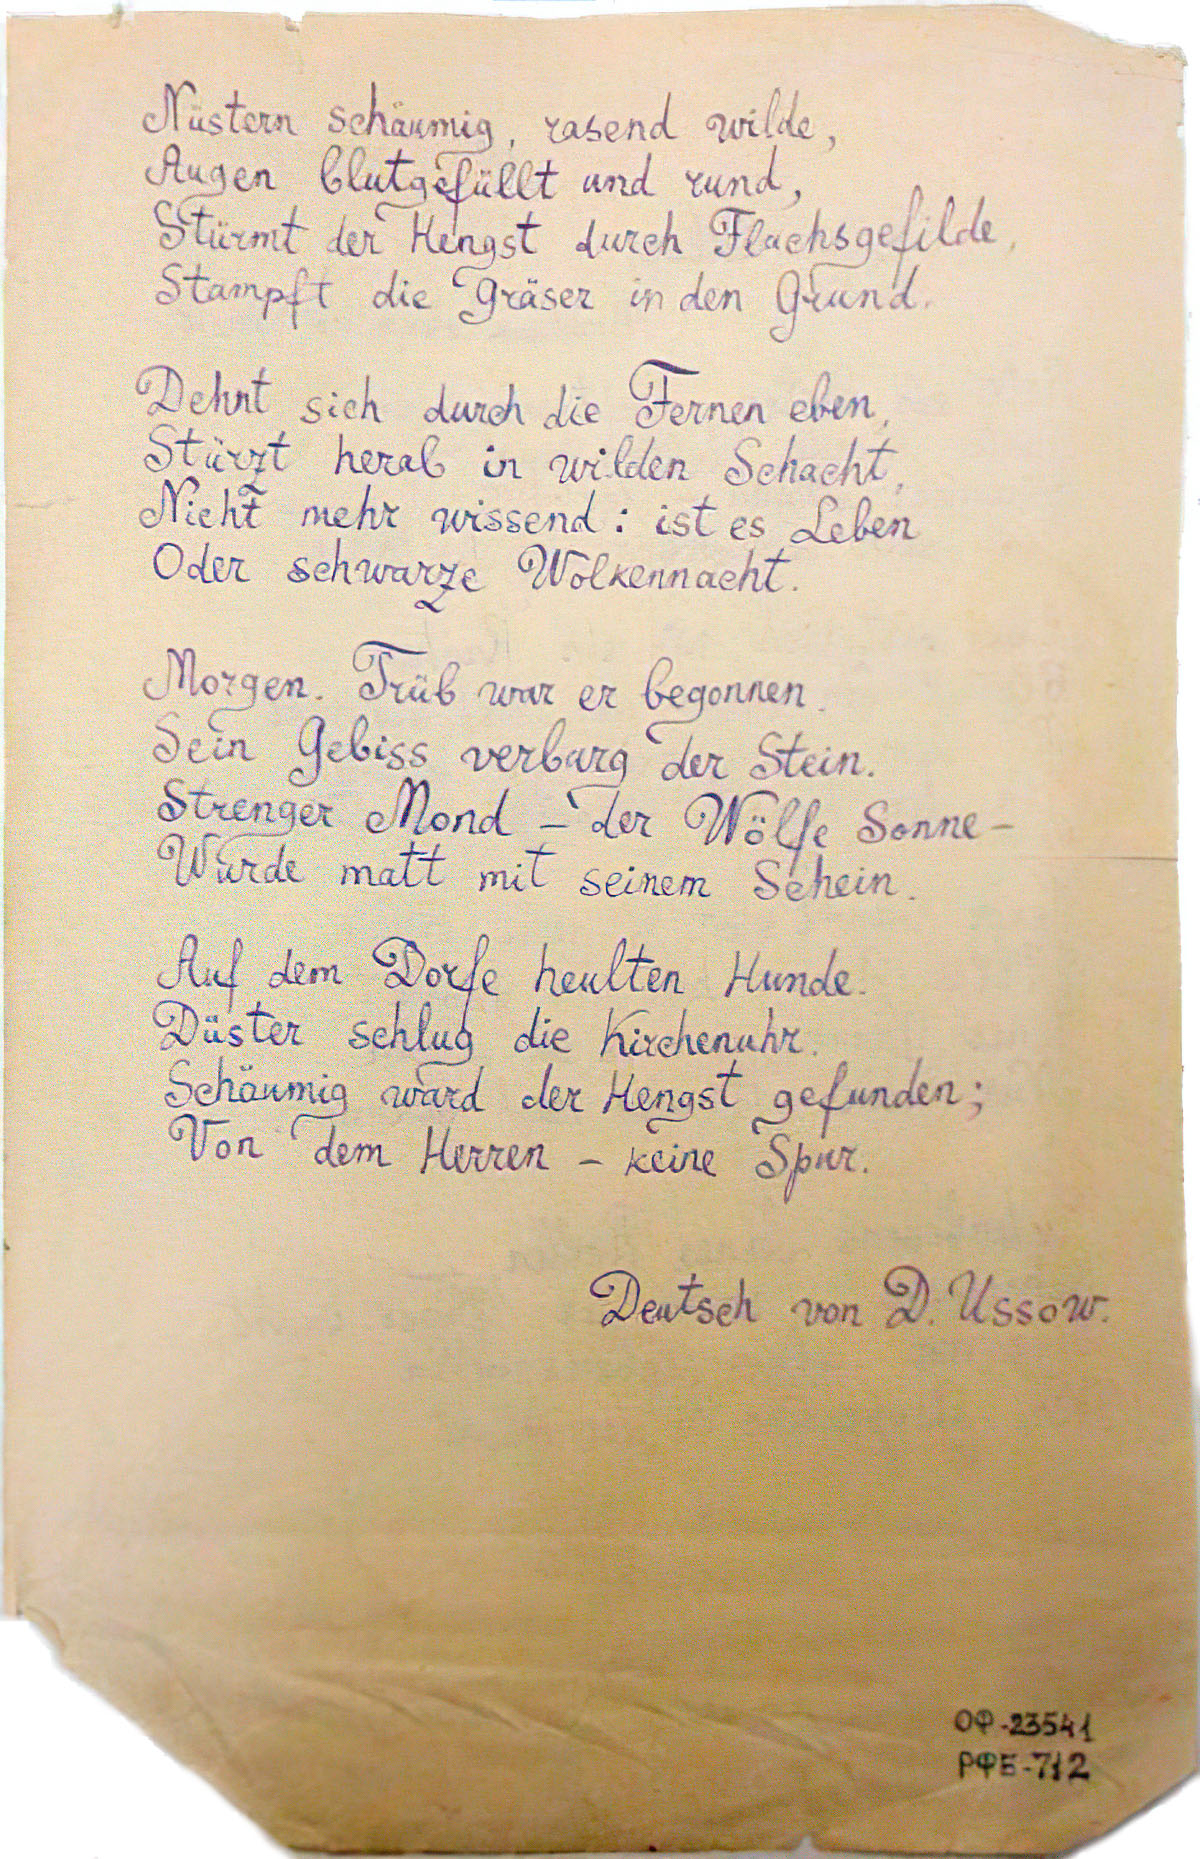 Nüstern schäumig, rasend wilde,
Augen blutgefüllt und rund,
Stürmt der Hengst durch Flachsgefilde,
Stampft die Gräser in den Grund.
Dehnt sich durch die Fernen eben,
Stürzt herab in wilden Schacht,
Nicht mehr wissend: ist es Leben
Oder schwarze Wolkennacht.
Morgen. Trüb war er begonnen.
Sein Gebiss verbarg der Stein.
Strenger Mond – der Wölfe Sonne –
Wurde matt mit seinem Schein.
Auf dem Dorfe heulten Hunde.
Düster schlug die Kirchenuhr.
Schäumig ward der Hengst gefunden;
Von dem Herren – keine Spur.
Deutsch von D. Ussow.
ОФ-23541
РФБ-712